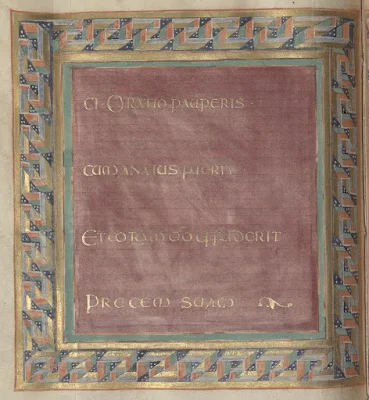 CI ORATIO PAUPERIS ·
CUM ANXIUS FUERIT
ET CORAM DO EFFUDERIT
PRECEM SUAM